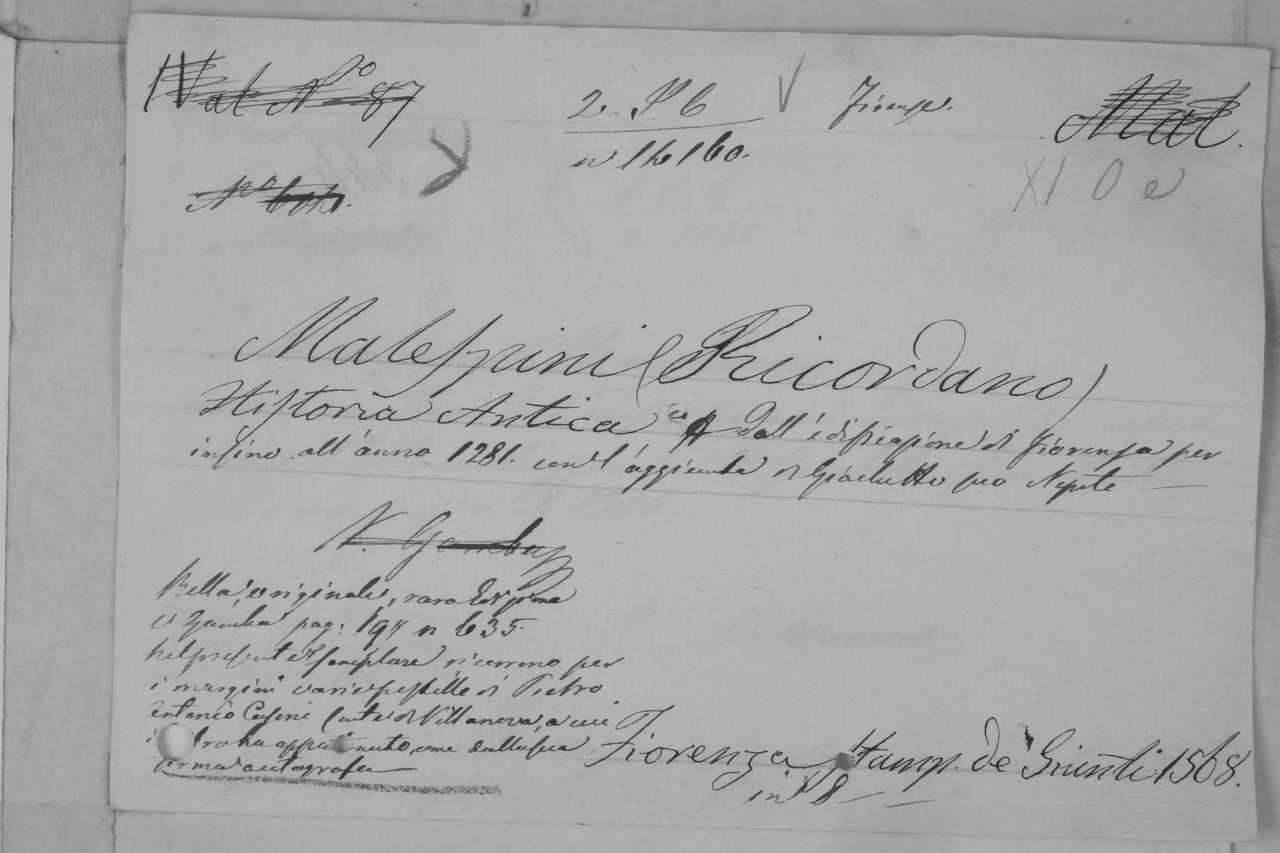 IV al N.o 87
2. P. 6
Firenze.
Mal.
n 16160.
XI O e
Malespini (Ricordano)
Historia Antica dall'edificazione di Fiorenza per
insino all'anno 1281. con l'aggiunta di Giachetto suo Nipote
V. Gamba
Bella, originale, rara Edizione
V Gamba pag: 194 n 635.
Nel presente Esemplare ricorrono per
i margini varie postille di Pietro
Antonio di Villanova, a cui
appartenuto, come dalla sua
firma autografa
Fiorenza Stamp. de Giunti 1568.
in 8